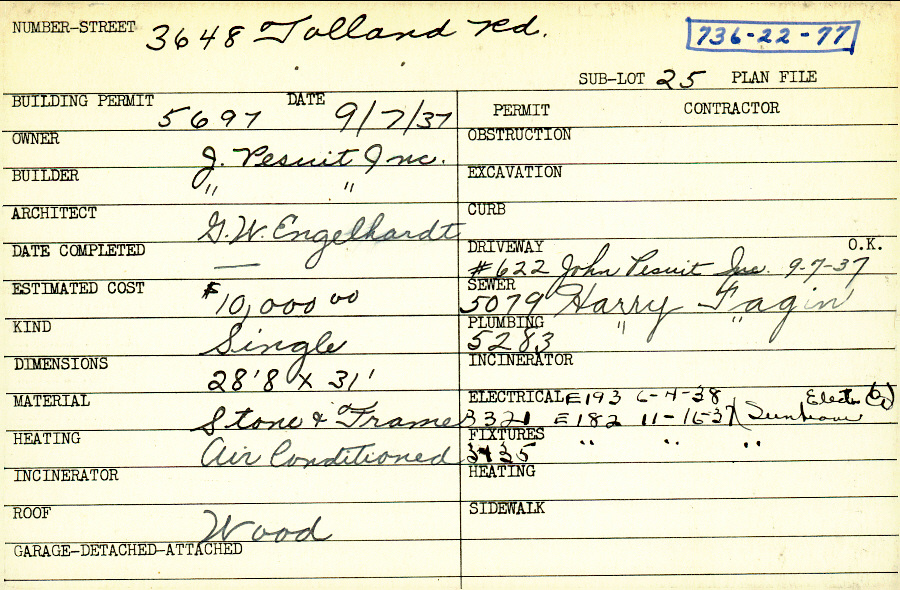 NUMBER-STREET 3648 Tolland Rd. 736-22-77
SUB-LOT 25 PLAN FILE
BUILDING PERMIT 5697 DATE 9/7/37
PERMIT CONTRACTOR
OWNER J. Pesuit Inc.
OBSTRUCTION
BUILDER " "
EXCAVATION
ARCHITECT G.W. Engelhardt
CURB
DATE COMPLETED —
DRIVEWAY O.K.
#622 John Pesuit Inc. 9-7-37
ESTIMATED COST $10,000 00
SEWER
5079 Harry Fagin
KIND Single
PLUMBING " "
5283
DIMENSIONS 28'8 X 31'
INCINERATOR
MATERIAL Stone & Frame
ELECTRICAL E193 6-4-38 Electr Co
3321 E182 11-16-37 (Sunbeam
HEATING Air Conditioned
FIXTURES " " "
3435
INCINERATOR
HEATING
ROOF Wood
SIDEWALK
GARAGE-DETACHED-ATTACHED